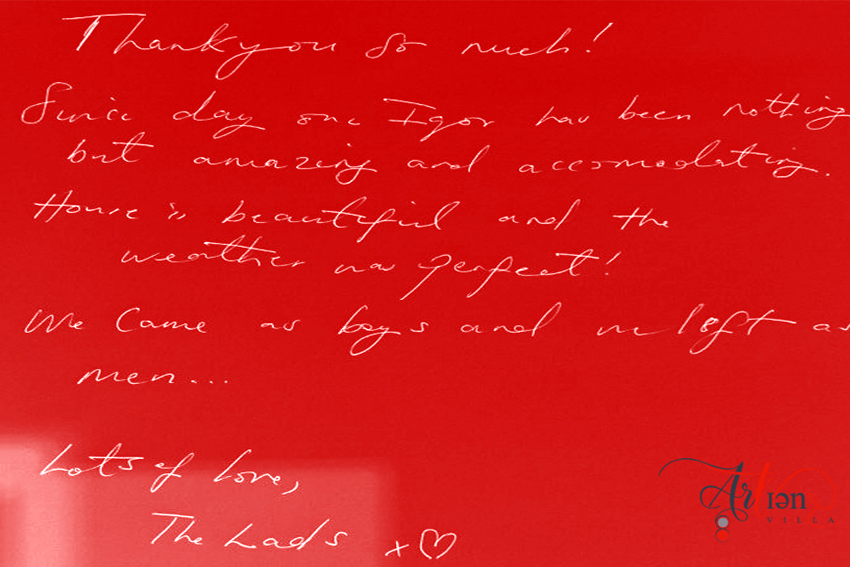 Thank you so much!
Since day one Igor has been nothing
but amazing and accomodating.
House is beautiful and the
weather was perfect!
We came as boys and we left as
men...
Lots of love,
The Lads x♡
Arvien
VILLA